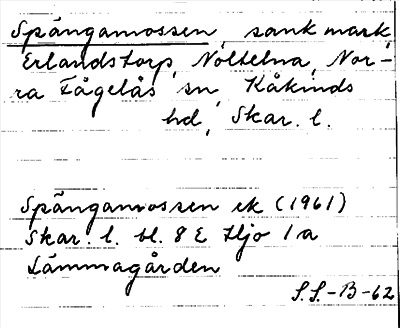 Spångamossen, sank mark,
Erlandstorp, Noltelna, Nor-
ra Fågelås sn, Kåkinds
hd, Skar. l.
Spångamossen ek (1961)
Skar. l. bl. 8 E Hjo 1 a
Lämmagården
S.S.-B-62